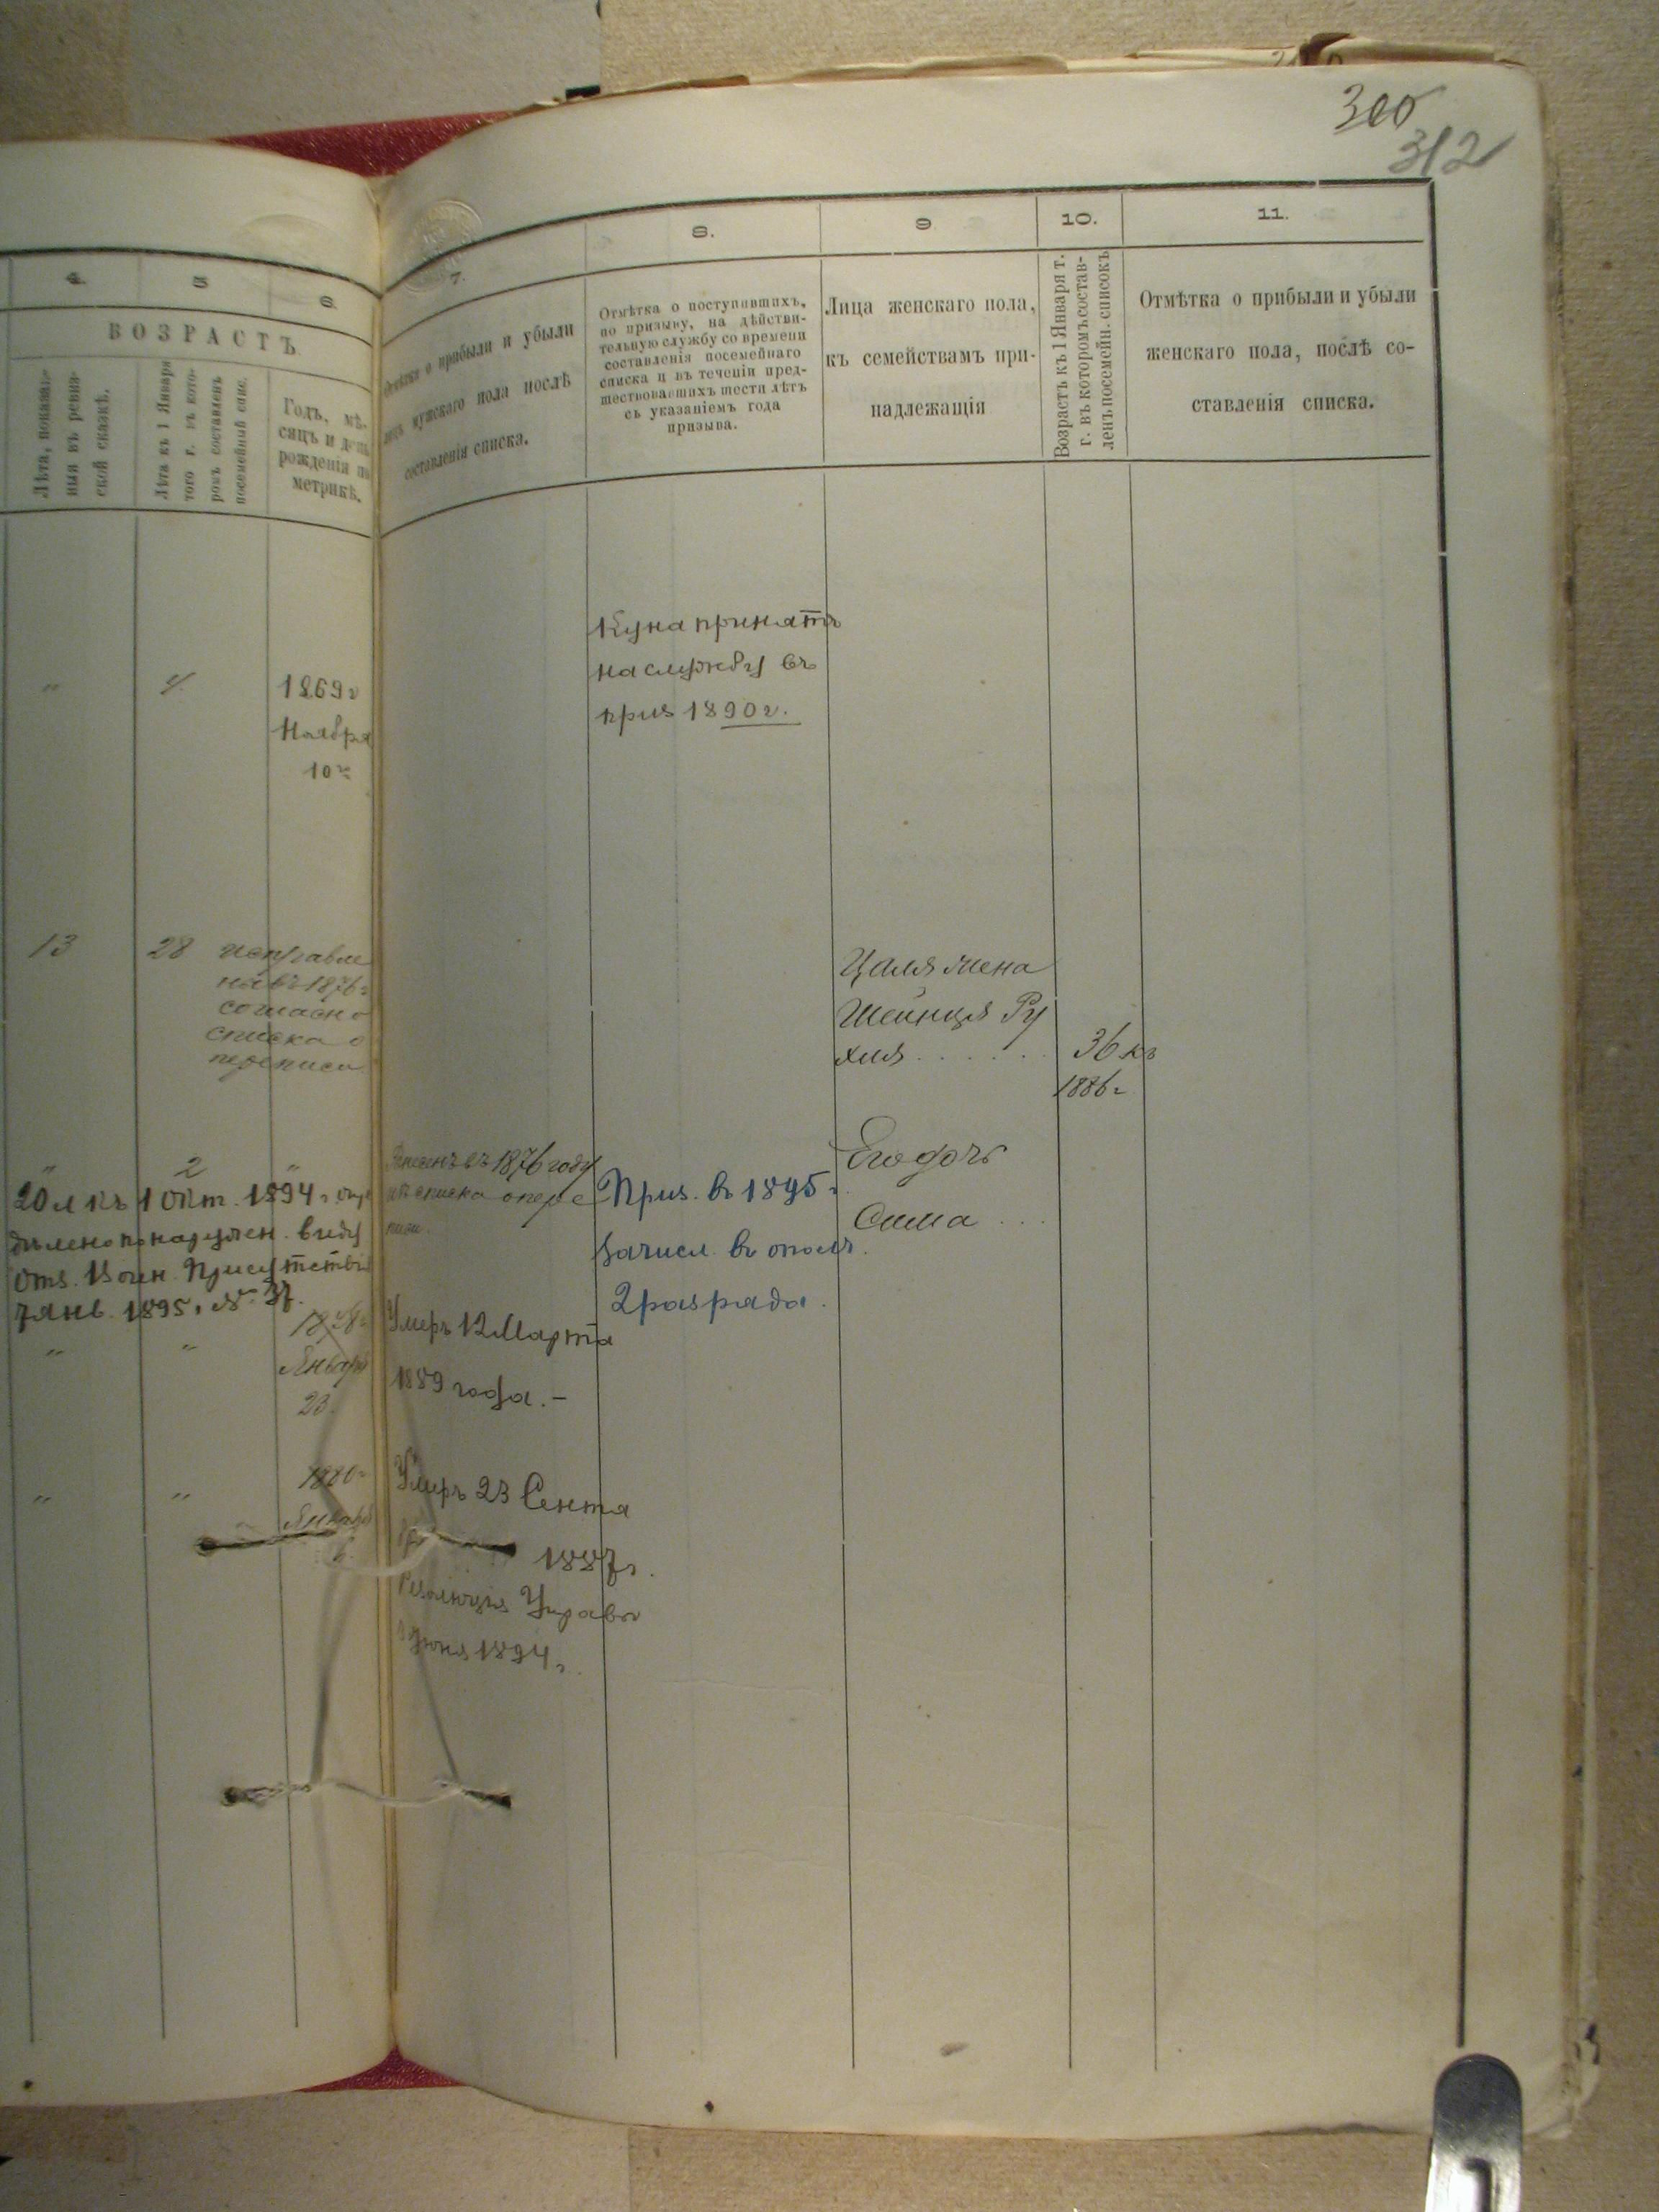 300
312
4.
5
6.
7.
8.
9
10.
11.
ВОЗРАСТЪ
Лѣта, показан-
ныя въ ревиз-
ской сказкѣ.
Лѣта къ 1 Января
того г. въ кото-
ромъ составленъ
посемейный спис.
Годъ, мѣ-
сяцъ и день
рожденія по
метрикѣ.
Отмѣтка о прибыли и убыли
лицъ мужскаго пола послѣ
составленія списка.
Отмѣтка о поступившихъ,
по призыву, на дѣйстви-
тельную службу со времени
составленія посемейнаго
списка и въ теченіи пред-
шествовавшихъ шести лѣтъ
съ указаніемъ года
призыва.
Лица женскаго пола,
къ семействамъ при-
надлежащія
Возрастъ къ 1 Января т.
г. въ которомъ состав-
ленъ посемейн. списокъ
Отмѣтка о прибыли и убыли
женскаго пола, послѣ со-
ставленія списка.
" 4. 1869 г
Ноября
10
Куна принятъ
на службу въ
приз 1890 г.
13 28 исправле
ны въ 1876 г
согласно
списка о
переписи
Цаля жена
Шейнця Ру
хля . . . . . . 36 къ
1886 г
" 2 "
20 л къ 1 Окт. 1894 г. опре
дѣлено по наружн. виду
отз. Воин. Присутствія
7 янв. 1895 г. № 37.
въ 1876 году
изъ списка о пере
писи.
Приз. въ 1895 г.
зачисл. въ ополч.
2 разряда.
Его дочь
Сима . . .
" "
Январ
23.
Умеръ 12 Марта
1889 года. –
" " 1880 г
Январ
Умеръ 23 Сентя
1887 г.
Резолюція Управы
Іюня 1894 г.